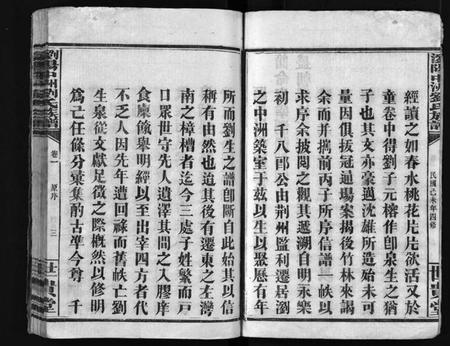 瀏陽中洲劉氏族譜
民國己未年四修
世貴堂
經讀之如春水桃花片片欲活又於
童卷中得劉子元榕作卽泉生之猶
子也其文亦豪邁沈雄所造始未可
量因俱拔冠通場案揭後竹林來謁
余而并攜前丙子所序信譜一帙以
求序余披閱之觀其遷溯自明永樂
初 千八郎公由荆州監利遷居瀏
之中洲築室于兹以生以聚歷有年
所而劉生之譜卽斷自此始其以信
稱有由然也迨其後有遷東之左灣
南之樟槽者迄今三處子姓繁而戸
口衆世守先人遺澤其間之入膠庠
食廪餼舉明經以至出宰四方者代
不乏人因先年遭回祿而舊帙亡劉
生泉從文獻足徵之際慨然以修明
爲己任條分彙集酌古準今尊 千
瀏陽中洲劉氏族譜
卷一 原序
三
世貴堂